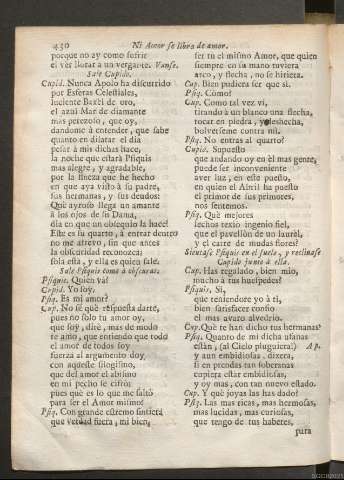 430 Ni Amor se libra de amor.
porque no ay como sufrir
el vèr llorar a un vergante. Vanse.
Sale Cupido.
Cupid. Nunca Apolo ha discurrido
por Esferas Celestiales,
luciente Baxèl de oro,
el azul Mar de diamante
mas perezoso, que oy,
dandome à entender, que sabe
quanto en dilatar el dia
pesar à mis dichas hace,
la noche que estarà Psiquis
mas alegre, y agradable,
por la fineza que he hecho
en que aya visto à su padre,
sus hermanas, y sus deudos:
Què ayroso llega un amante
à los ojos de su Dama,
dia en que un obsequio la hace!
Este es su quarto, à entrar dentro
no me atrevo, sin que antes
la obscuridad reconozca:
sola està, y ella es quien sale.
Sale Psiquis como à obscuras.
Psiquis. Quien và?
Cupid. Yo soy.
Psiq. Es mi amor?
Cup. No sè què respuesta darte,
pues no solo tu amor oy,
que soy, dirè, mas de modo
te amo, que entiendo que todo
el amor de todos soy
fuerza al argumento doy
con aqueste silogismo,
que del amor el abismo
en mi pecho se cifrò:
pues què es lo que me faltò
para ser el Amor mismo?
Psiq. Con grande estremo sintiera
que verdad fuera, mi bien,
ser tu el mismo Amor, que quien
siempre en su mano tuviera
arco, y flecha, no se hiriera.
Cup. Bien pudiera ser que sì.
Psiq. Còmo?
Cup. Como tal vez vi,
tirando à un blanco una flecha,
tocar en piedra, y deshecha,
bolverseme contra mi.
Psiq. No entras al quarto?
Cupid. Supuesto
que andando oy en èl mas gente,
puede ser inconveniente
aver luz, en este puesto,
en quien el Abril ha puesto
el primor de sus primores,
nos sentemos.
Psiq. Què mejores
lechos texio ingenio fiel,
que el pavellòn de un laurèl,
y el catre de mudas flores?
Sientase Psiquis en el suelo, y reclinase
Cupido junto à ella.
Cup. Has regalado, bien mio,
mucho à tus huespedes?
Psiquis. Sì,
que teniendore yo à tì,
bien satisfacer confio
el mas avaro alvedrio.
Cup. Què te han dicho tus hermanas?
Psiq. Quanto de mi dicha ufanas
estàn; (al Cielo pluguiera!) Ap.
y aun embidiosas, dixera,
si en prendas tan soberanas
cupiera estàr embidiosas,
y oy mas, con tan nuevo estado.
Cup. Y què joyas las has dado?
Psiq. Las mas ricas, mas hermosas,
mas lucidas, mas curiosas,
que tengo de tus haberes,
para